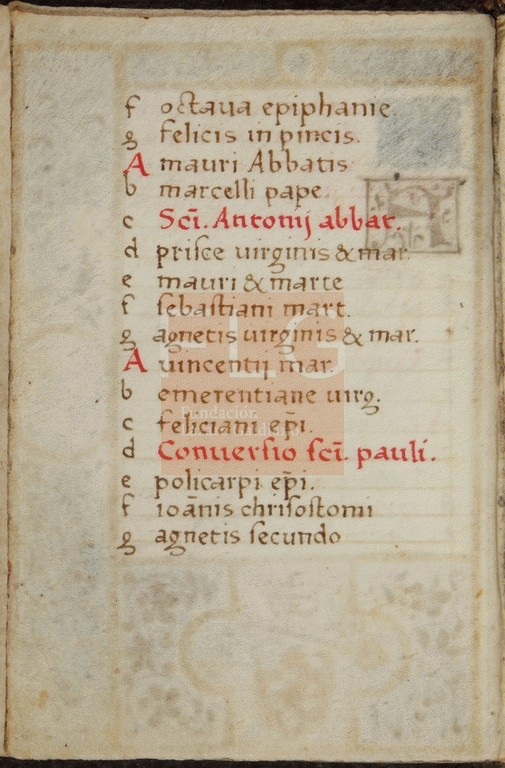 f octaua epiphanie
g felicis in pincis.
A mauri Abbatis
b marcelli pape
c Scī. Antonij abbat.
d prisce uirginis & mar.
e mauri & marte
f sebastiani mart.
g agnetis uirginis & mar.
A uincentij mar.
b emerentiane uirg.
c feliciani ep̄i.
d Conuersio scī. pauli.
e policarpi ep̄i.
f ioānis chrisostomi
g agnetis secundo
FLG
Fundación